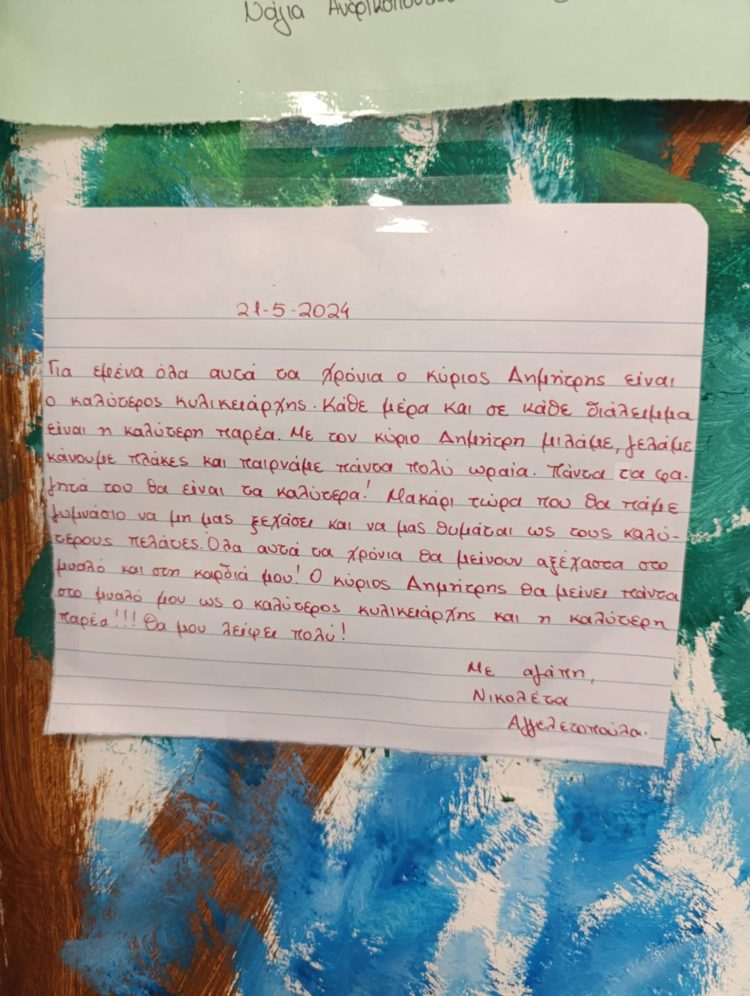 Νάγια
21-5-2024
Για εμένα όλα αυτά τα χρόνια ο κύριος Δημήτρης είναι
ο καλύτερος κυλικειάρχης. Κάθε μέρα και σε κάθε διάλειμμα
είναι η καλύτερη παρέα. Με τον κύριο Δημήτρη μιλάμε, γελάμε
κάνουμε πλάκες και παιρνάμε πάντα πολύ ωραία. Πάντα τα φα-
γητά του θα είναι τα καλύτερα! Μακάρι τώρα που θα πάμε
γυμνάσιο να μη μας ξεχάσει και να μας θυμάται ως τους καλύ-
τερους πελάτες. Όλα αυτά τα χρόνια θα μείνουν αξέχαστα στο
μυαλό και στη καρδιά μου! Ο κύριος Δημήτρης θα μείνει πάντα
στο μυαλό μου ως ο καλύτερος κυλικειάρχης και η καλύτερη
παρέα!!! Θα μου λείψει πολύ!
Με αγάπη,
Νικολέτα
Αγγελετοπούλα.